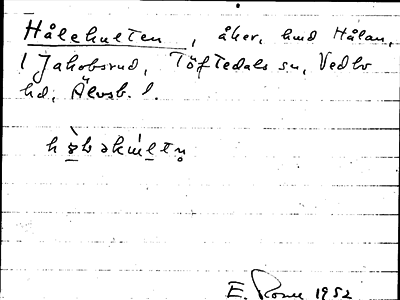 Hålekulten, åker, hmd Hålan,
1 Jakobsrud, Töftedals sn, Vedbo
hd, Älvsb. l.
E. 1952